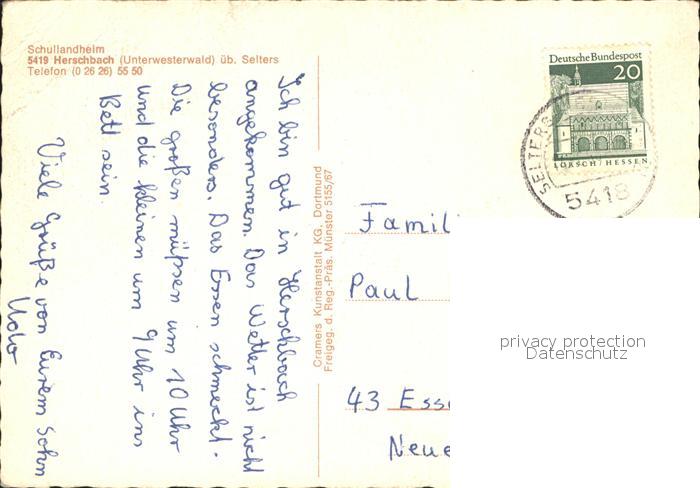 Schullandheim
5419 Herschbach (Unterwesterwald) üb. Selters
Telefon (0 26 26) 55 50
Ich bin gut in Herschbach
angekommen. Das Wetter ist nicht
besonders. Das Essen schmeckt.
Die großen müssen um 10 Uhr
und die kleinen um 9 Uhr ins
Bett sein.
Viele Grüße von Eurem Sohn
Udo
Cramers Kunstanstalt KG, Dortmund
Freigeg. d. Reg.-Präs. Münster 5155/67
Deutsche Bundespost
20
LORSCH / HESSEN
SELTERS
5418
Famil
Paul
43 Esse
Neue
privacy protection
Datenschutz